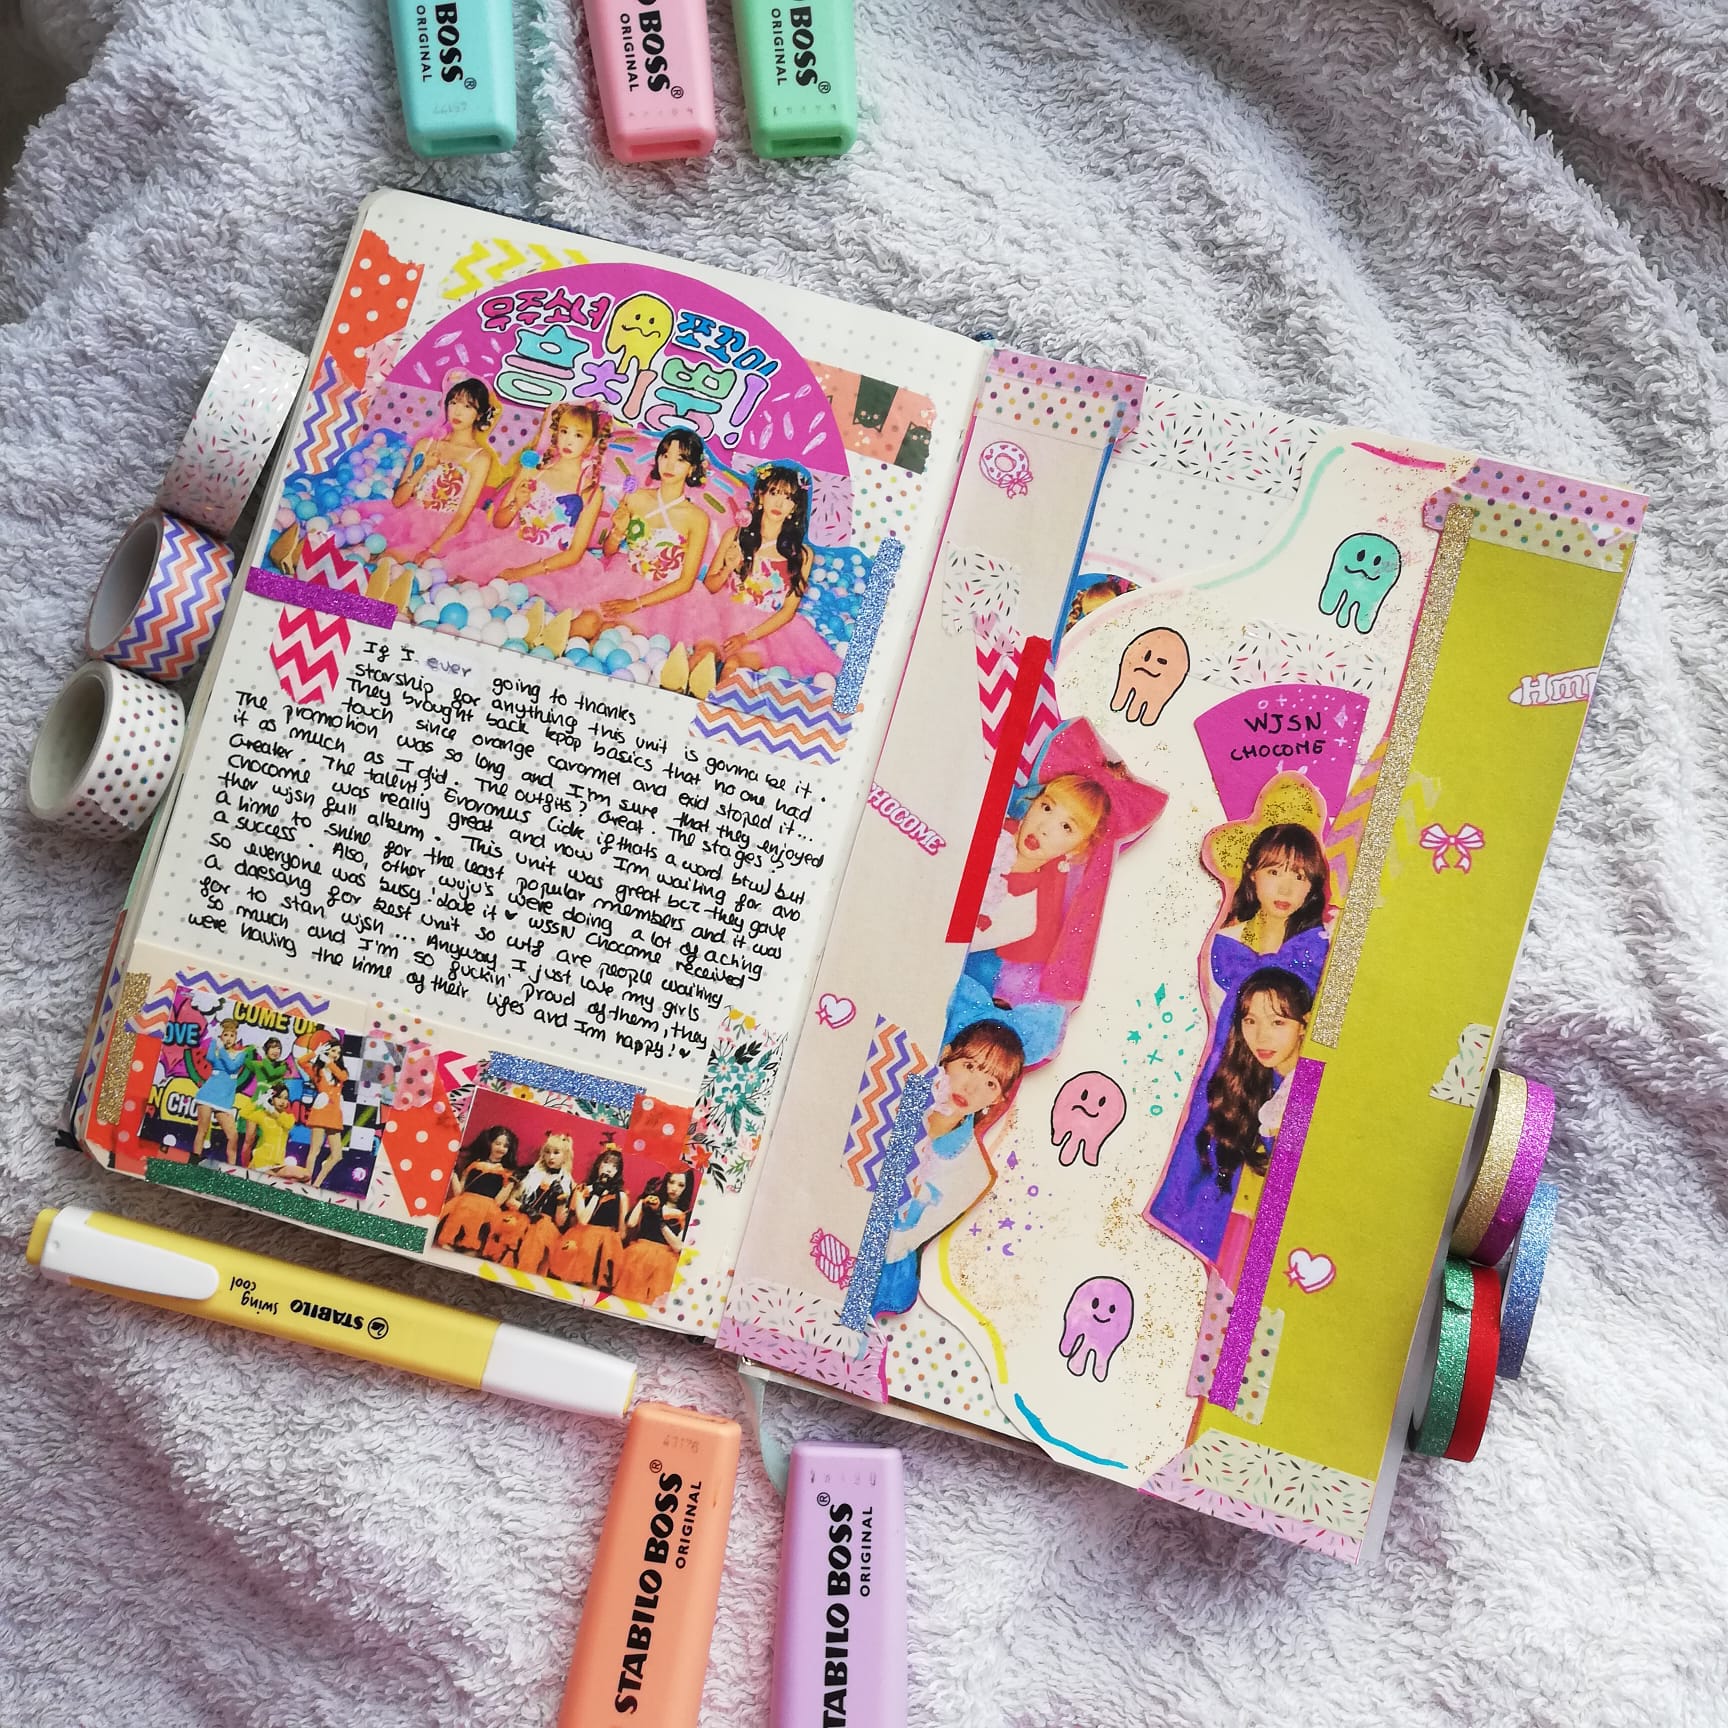 BOSS
ORIGINAL
BOSS
ORIGINAL
BOSS
ORIGINAL
우주소녀 쪼꼬미
흥칫뿡!
If I ever going to thanks
starship for anything this unit is gonna be it.
They brought back kpop basics that no one had
touch since orange caramel and exid stoped it...
The promotion was so long and I'm sure that they enjoyed
it as much as I did. The outfits? Great. The stages?
Greater. The talent? Enormous (idk if thats a word btw) but
Chocome was really great and now I'm waiting for
ther wjsn full album. This unit was great bcz they gave
a time to shine for the least popular members and it was
a success. Also, other wuju's were doing a lot of
so everyone was busy! Love it ♥ WJSN Chocome received
a daesang for best unit so wtf are people waiting
for to stan wjsn... Anyway I just love my girls
so much and I'm so fuckin' proud of them, they
were having the time of their lifes and I'm happy! ♥
LOVE
COME
CHO
ME
CHOCOME
WJSN
CHOCOME
Hmp
STABILO
swing
cool
STABILO BOSS
ORIGINAL
STABILO BOSS
ORIGINAL